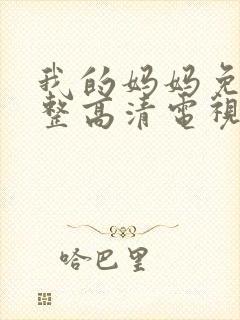 我的妈妈免
整高清電視
哈巴里